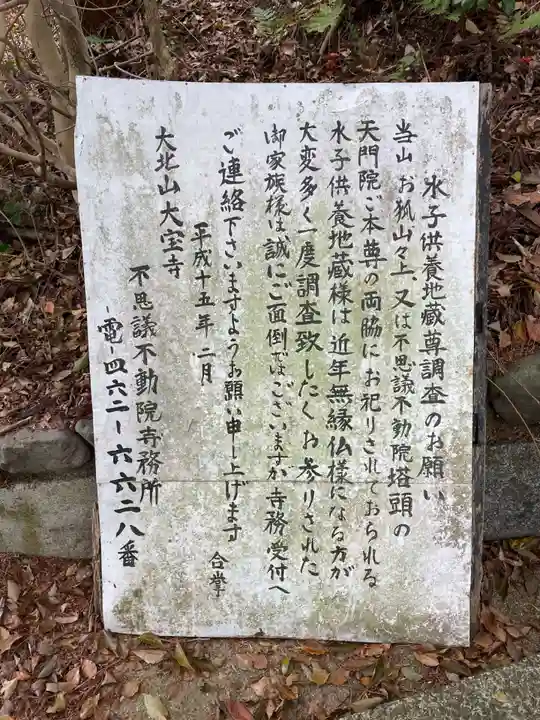 水子供養地蔵尊調査のお願い
当山 お狐山々上 又は不思議不動院塔頭の
天門院ご本尊の両脇にお祀りされておられる
水子供養地蔵様は近年無縁仏様になる方が
大変多く一度調査致したくお参りされた
御家族様は誠にご面倒ではございますが寺務受付へ
ご連絡下さいますようお願い申し上げます
合掌
平成十五年二月
大北山大宝寺
不思議不動院寺務所
-電-四六二-六六二八番